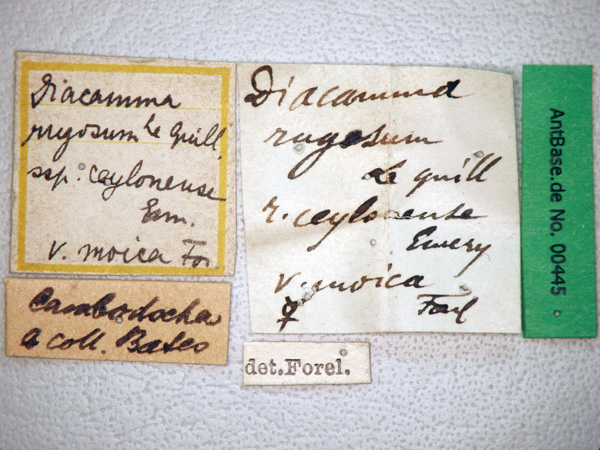 Diacamma
rugosum Le Guill.
ssp. ceylonense
Em.
v. moica For.
Cambodscha
a coll. Bates
Diacamma
rugosum
Le Guill
r. ceylonense
Emery
v. moica
☿ Forl
det.Forel.
AntBase.de No. 00445